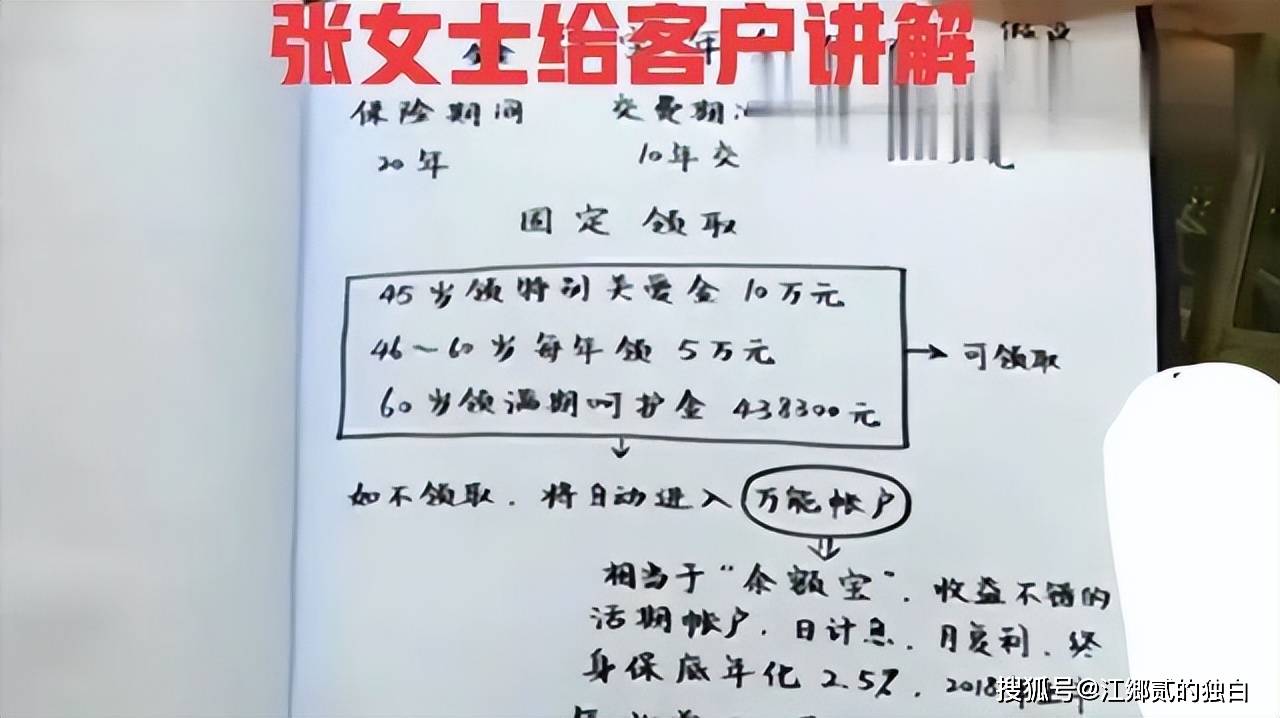 张女士给客户讲解
年 假设
保险期间 交费期
20年 10年交
固定领取
45岁领特别关爱金 10万元
46~60岁每年领 5万元
60岁领满期呵护金 438300元
可领取
如不领取.将自动进入 万能帐户
相当于“余额宝”.收益不错的
活期帐户.日计息.月复利.终
身保底年化2.5%.2018年
搜狐号@江鄉贰的独白